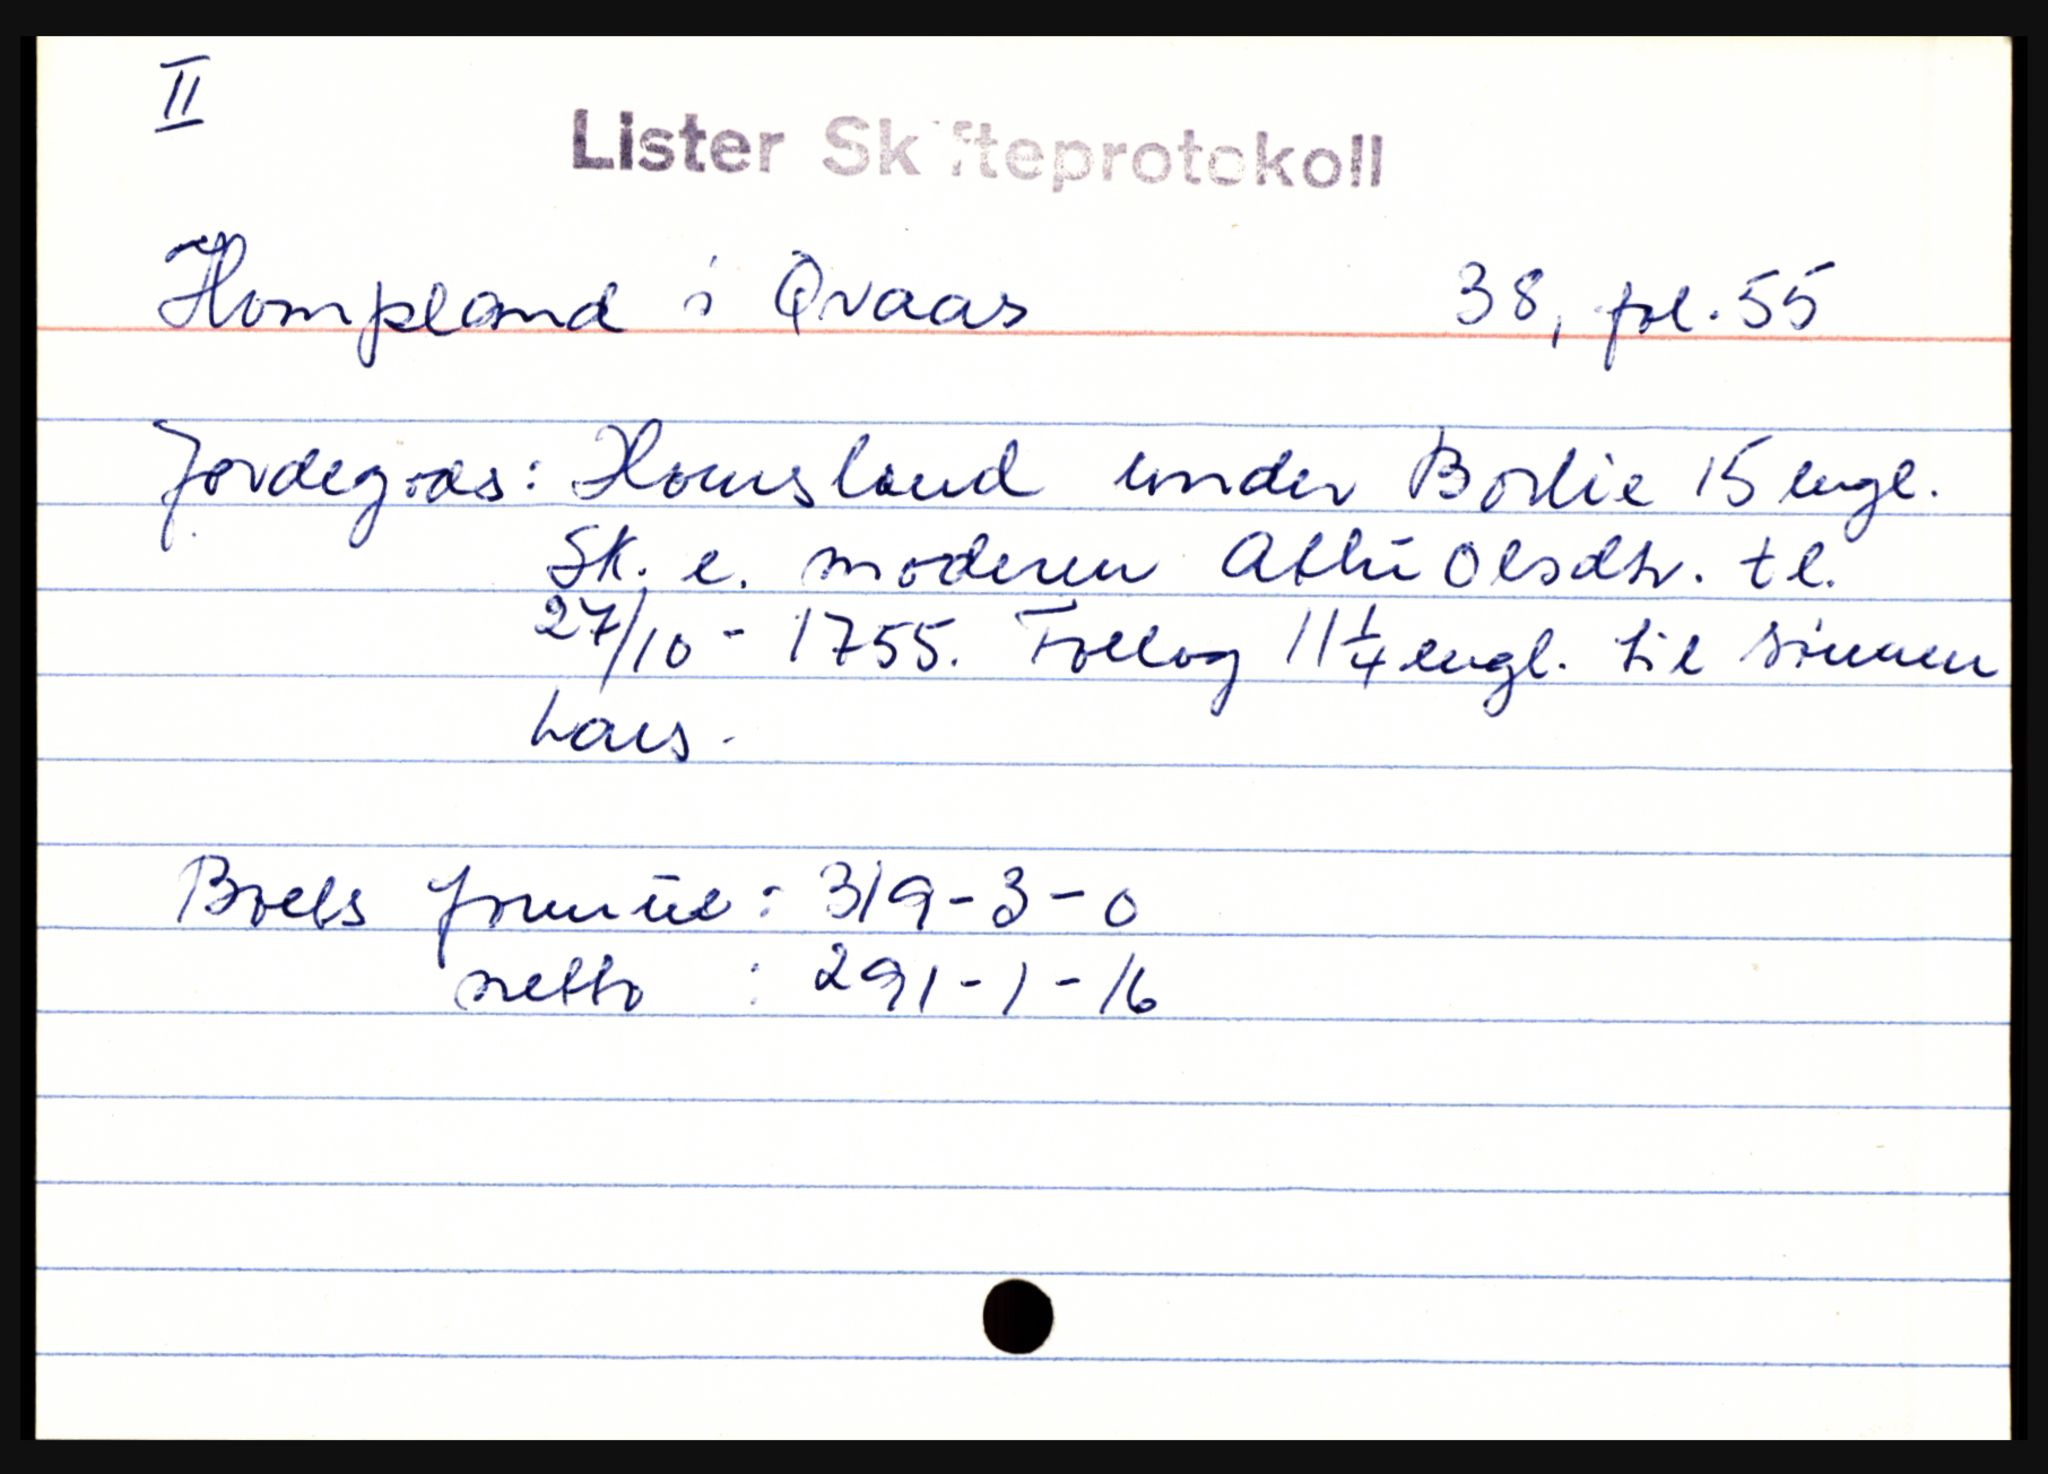 II
Lister Skifteprotokoll
Hompland i Qvaas 38, fol. 55
Jordegods: Homsland under Borlie 15 engl.
Sk. e. moderen Athi Olsdtr. tl.
27/10 - 1755. Frelog 11 1/4 engl. til sønnen
Lars.
Boets formue: 319-3-0
netto : 291-1-16